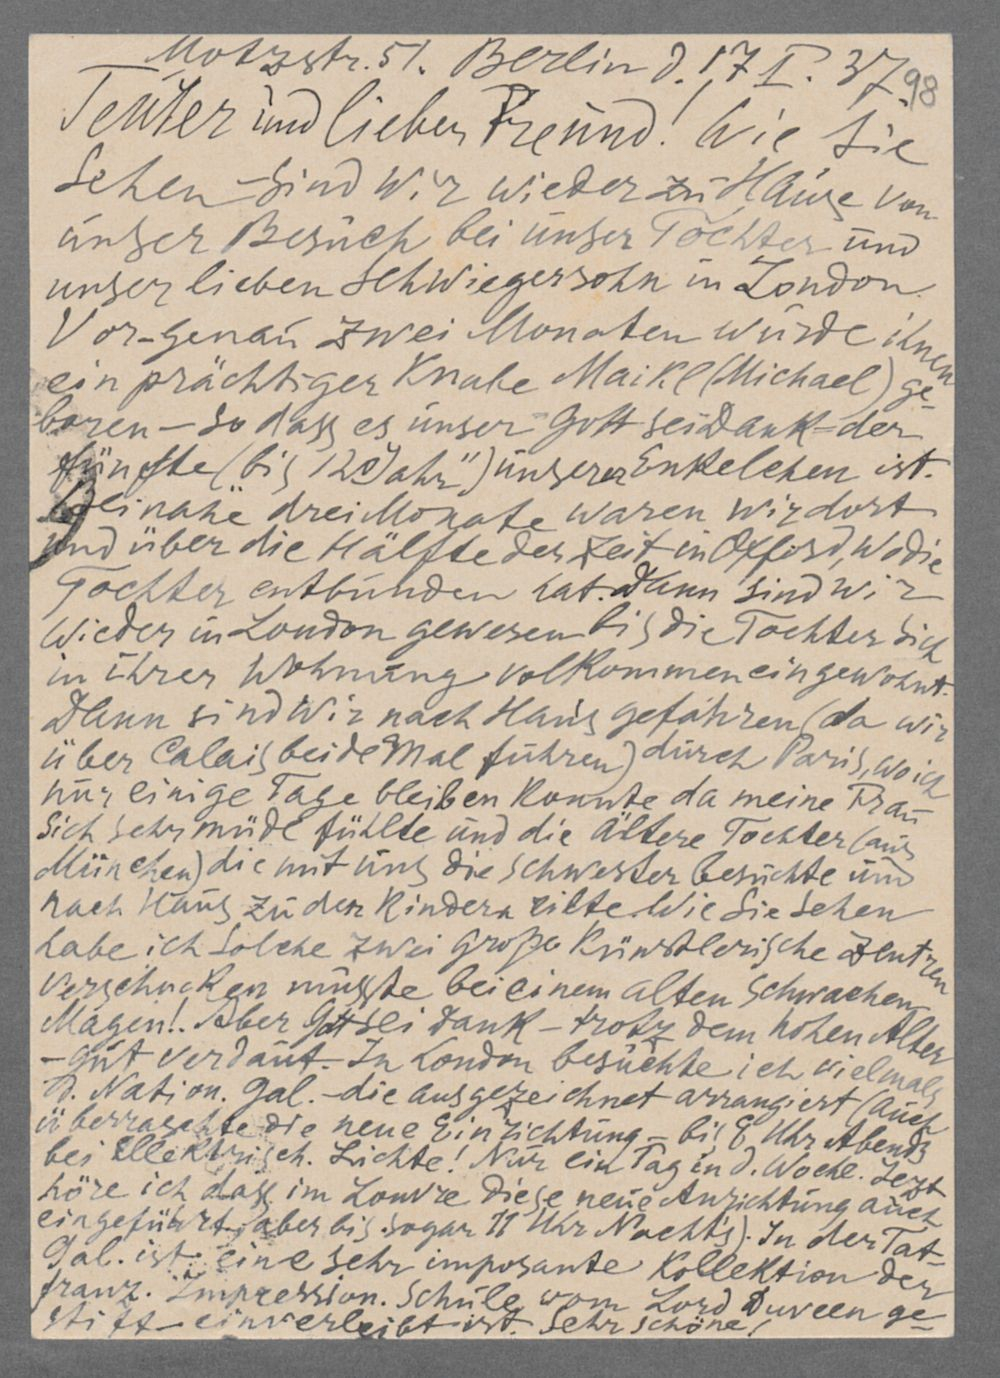 Motzstr. 51. Berlin d. 17 I. 37.
98
Teurer und lieber Freund! Wie Sie
sehen – sind wir wieder zu Hause von
unser Besuch bei unser Tochter und
unser lieben Schwiegersohn in London.
Vor-genau zwei Monaten wurde ihnen
ein prächtiger Knabe Maikl (Michael) ge-
boren – so dass es unser Gott sei Dank = der
fünfte (bis 120 Jahr") unserer Enkelchen ist.
beinahe drei Monate waren wir dort
und über die Hälfte der Zeit in Oxford, wo die
Tochter entbunden hat. Dann sind wir
wieder in London gewesen bis die Tochter sich
in ihrer Wohnung volkommen eingewohnt.
Dann sind wir nach Haus gefahren (da wir
über Calais beide Mal fuhren) durch Paris, wo ich
nur einige Tage bleiben konnte da meine Frau
sich sehr müde fühlte und die ältere Tochter (aus
München) die mit uns die Schwester besuchte und
nach Haus zu den Kindern eilte. Wie Sie sehen
habe ich solche zwei große künstlerische Zentren
verschucken müsste bei einem alten schwachen
Magen!. Aber Gott sei Dank – trotz dem hohen Alter
– gut verdaut. In London besuchte ich vielmals
d. Nation. Gal. – die ausgezeichnet arrangiert (auch
überraschte die neue Einrichtung – bis 8 Uhr Abends
bei Ellektrisch. Lichte! Nur ein Tag in d. Woche. Jezt
höre ich dass im Louvre diese neue Anrichtung auch
eingeführt, aber bis sogar 11 Uhr Nachts). In der Tat-
Gal. ist eine sehr imposante Kollektion der
franz. Impression. Schule vom Lord Duveen ge-
stift einverleibt ist. Sehr schöne!